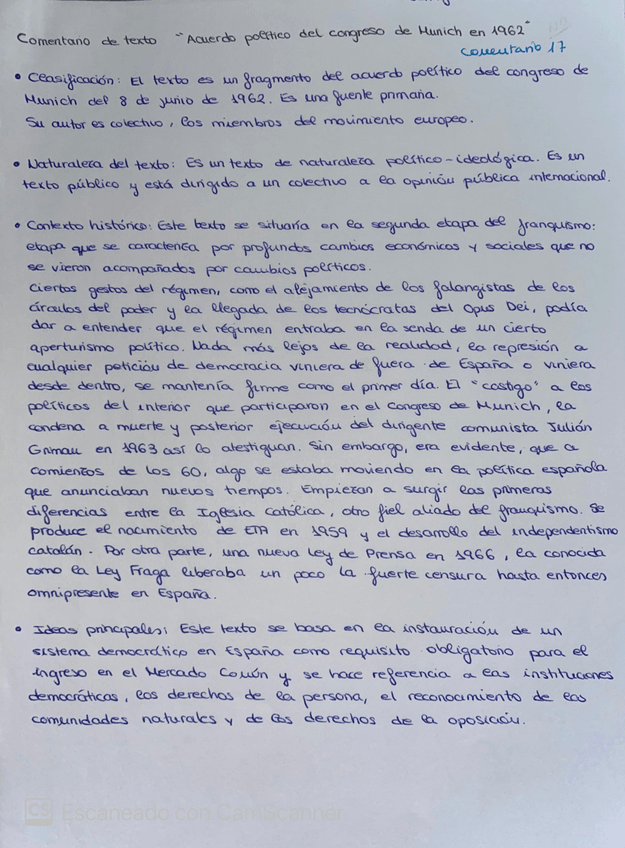 Comentario de texto "Acuerdo político del congreso de Munich en 1962"
Comentario 17
• Clasificación: El texto es un fragmento del acuerdo político del congreso de
Munich del 8 de junio de 1962. Es una fuente primaria.
Su autor es colectivo, los miembros del movimiento europeo.
• Naturaleza del texto: Es un texto de naturaleza político-ideológica. Es un
texto público y está dirigido a un colectivo a la opinión pública internacional.
• Contexto histórico: Este texto se situaría en la segunda etapa del franquismo:
etapa que se caracteriza por profundos cambios económicos y sociales que no
se vieron acompañados por cambios políticos.
Ciertos gestos del régimen, como el alejamiento de los falangistas de los
círculos del poder y la llegada de los tecnócratas del Opus Dei, podía
dar a entender que el régimen entraba en la senda de un cierto
aperturismo político. Nada más lejos de la realidad, la represión a
cualquier petición de democracia viniera de fuera de España o viniera
desde dentro, se mantenía firme como el primer día. El "castigo" a los
políticos del interior que participaron en el Congreso de Munich, la
condena a muerte y posterior ejecución del dirigente comunista Julián
Grimau en 1963 así lo atestiguan. Sin embargo, era evidente, que a
comienzos de los 60, algo se estaba moviendo en la política española
que anunciaban nuevos tiempos. Empiezan a surgir las primeras
diferencias entre la Iglesia Católica, otro fiel aliado del franquismo. Se
produce el nacimiento de ETA en 1959 y el desarrollo del independentismo
catalán. Por otra parte, una nueva Ley de Prensa en 1966, la conocida
como la Ley Fraga liberaba un poco la fuerte censura hasta entonces
omnipresente en España.
• Ideas principales: Este texto se basa en la instauración de un
sistema democrático en España como requisito obligatorio para el
ingreso en el Mercado Común y se hace referencia a las instituciones
democráticas, los derechos de la persona, el reconocimiento de las
comunidades naturales y de los derechos de la oposición.
CS Escaneado con CamScanner